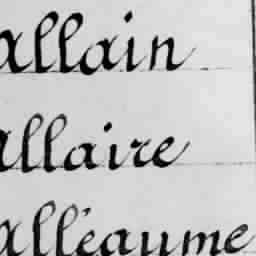 Allain
Allaire
Alléaume